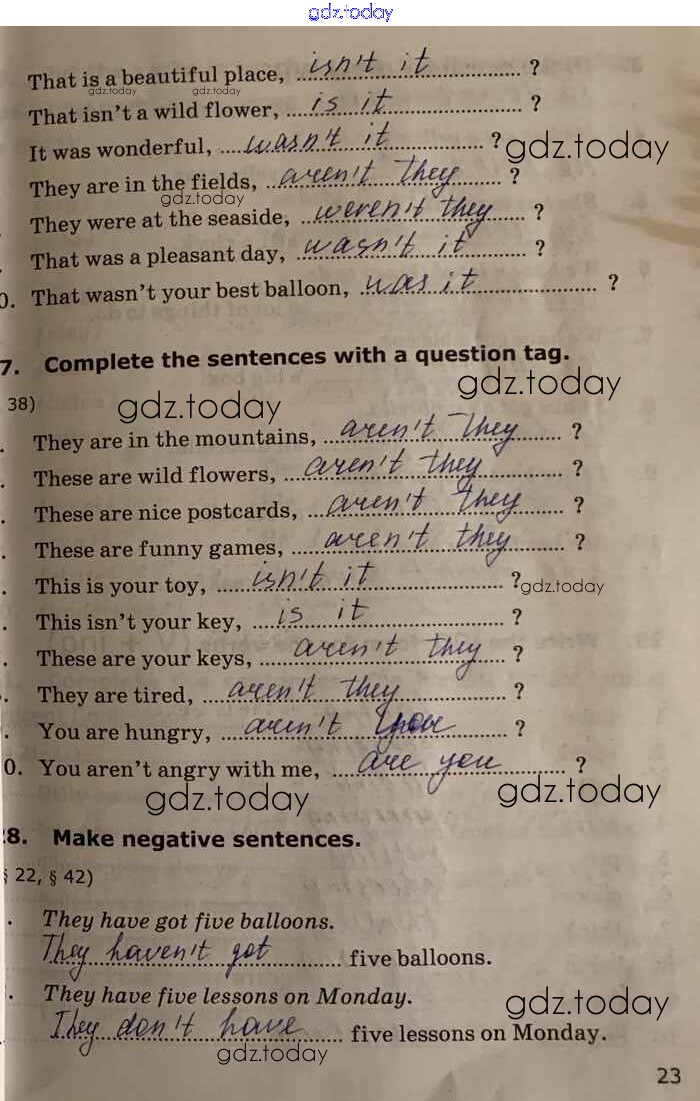 gdz.today
That is a beautiful place, isn't it ?
gdz.today gdz.today
That isn't a wild flower, is it ?
It was wonderful, wasn't it ?
gdz.today
They are in the fields, aren't they ?
gdz.today
They were at the seaside, weren't they ?
That was a pleasant day, wasn't it ?
0. That wasn't your best balloon, was it ?
7. Complete the sentences with a question tag.
gdz.today
38)
gdz.today
They are in the mountains, aren't They ?
These are wild flowers, aren't they ?
These are nice postcards, aren't they ?
These are funny games, aren't they ?
This is your toy, isn't it ?
gdz.today
This isn't your key, is it ?
These are your keys, aren't they ?
They are tired, aren't they ?
You are hungry, aren't you ?
0. You aren't angry with me, are you ?
gdz.today
gdz.today
28. Make negative sentences.
§ 22, § 42)
They have got five balloons.
They haven't got five balloons.
They have five lessons on Monday.
gdz.today
They don't have five lessons on Monday.
gdz.today
23